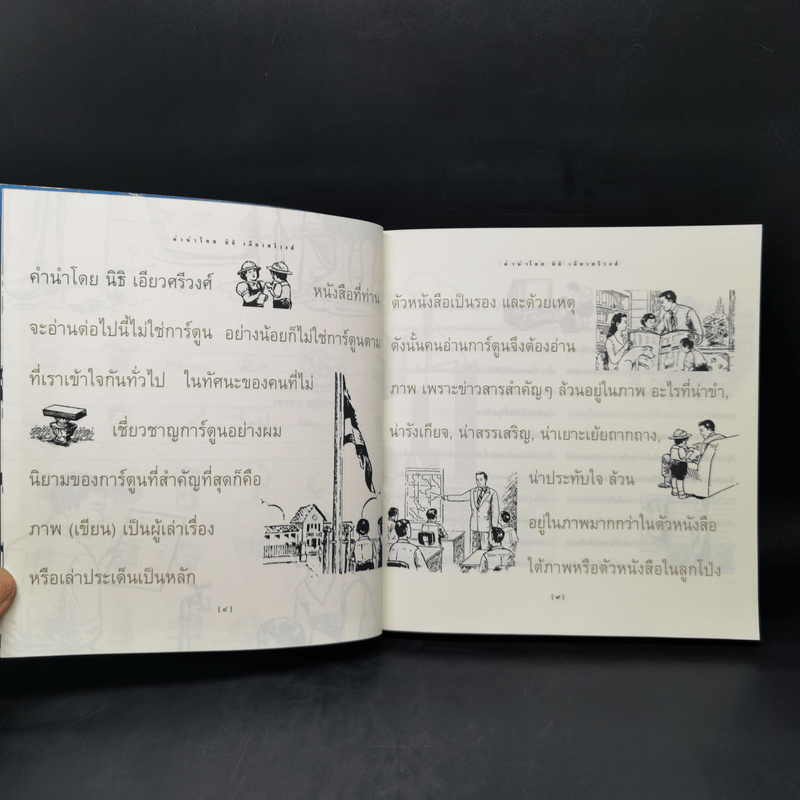 คำนำโดย นิธิ เอียวศรีวงศ์
คำนำโดย นิธิ เอียวศรีวงศ์
หนังสือที่ท่าน
จะอ่านต่อไปนี้ไม่ใช่การ์ตูน อย่างน้อยก็ไม่ใช่การ์ตูนตาม
ที่เราเข้าใจกันทั่วไป ในทัศนะของคนที่ไม่
เชี่ยวชาญการ์ตูนอย่างผม
นิยามของการ์ตูนที่สำคัญที่สุดก็คือ
ภาพ (เขียน) เป็นผู้เล่าเรื่อง
หรือเล่าประเด็นเป็นหลัก
คำนำโดย นิธิ เอียวศรีวงศ์
ตัวหนังสือเป็นรอง และด้วยเหตุ
ดังนั้นคนอ่านการ์ตูนจึงต้องอ่าน
ภาพ เพราะข่าวสารสำคัญๆ ล้วนอยู่ในภาพ อะไรที่น่าขำ,
น่ารังเกียจ, น่าสรรเสริญ, น่าเยาะเย้ยถากถาง,
น่าประทับใจ ล้วน
อยู่ในภาพมากกว่าในตัวหนังสือ
ใต้ภาพหรือตัวหนังสือในลูกโป่ง